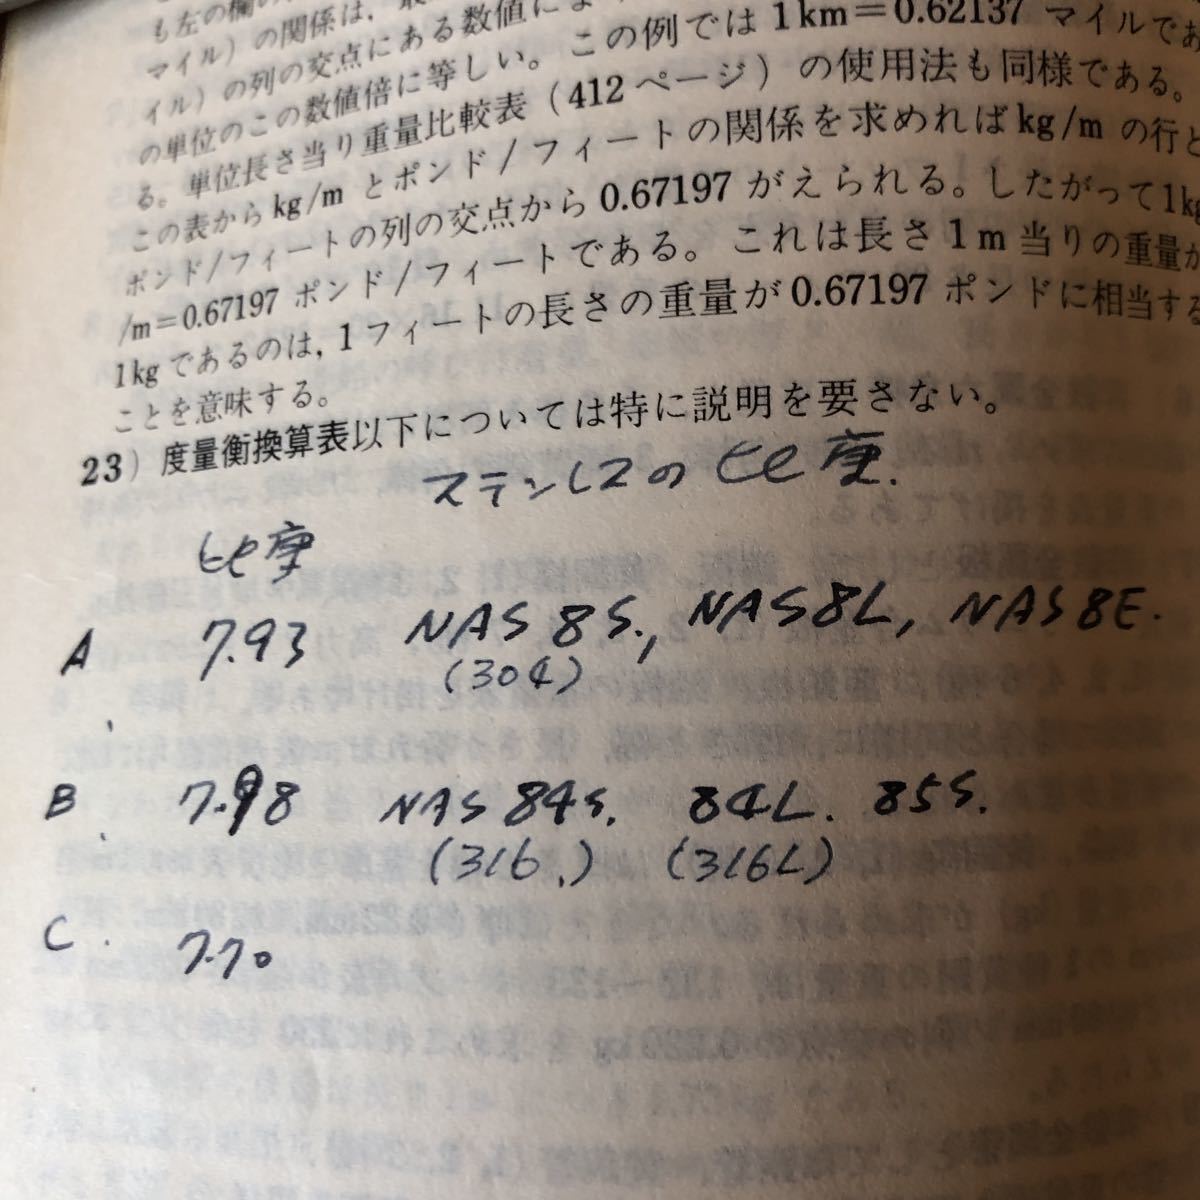 も左の欄の
マイル）の関係は，
イル）の列の交点にある数値に
の単位のこの数値倍に等しい。この例では1km＝0.62137 マイルであ
る。単位長さ当り重量比較表（412ページ）の使用法も同様である。
この表からkg/mとポンド/フィートの関係を求めればkg/mの行と
ポンド/フィートの列の交点から0.67197がえられる。したがって1kg
/m＝0.67197ポンド/フィートである。これは長さ1m当りの重量が
1kgであるのは，1フィートの長さの重量が0.67197ポンドに相当する
ことを意味する。
23）度量衡換算表以下については特に説明を要さない。
ステンレスの比重.
比重
A 7.93 NAS 8S., NAS8L, NAS8E.
(304)
B. 7.98 NAS 84S. 84L. 85S.
(316.) (316L)
C. 7.70